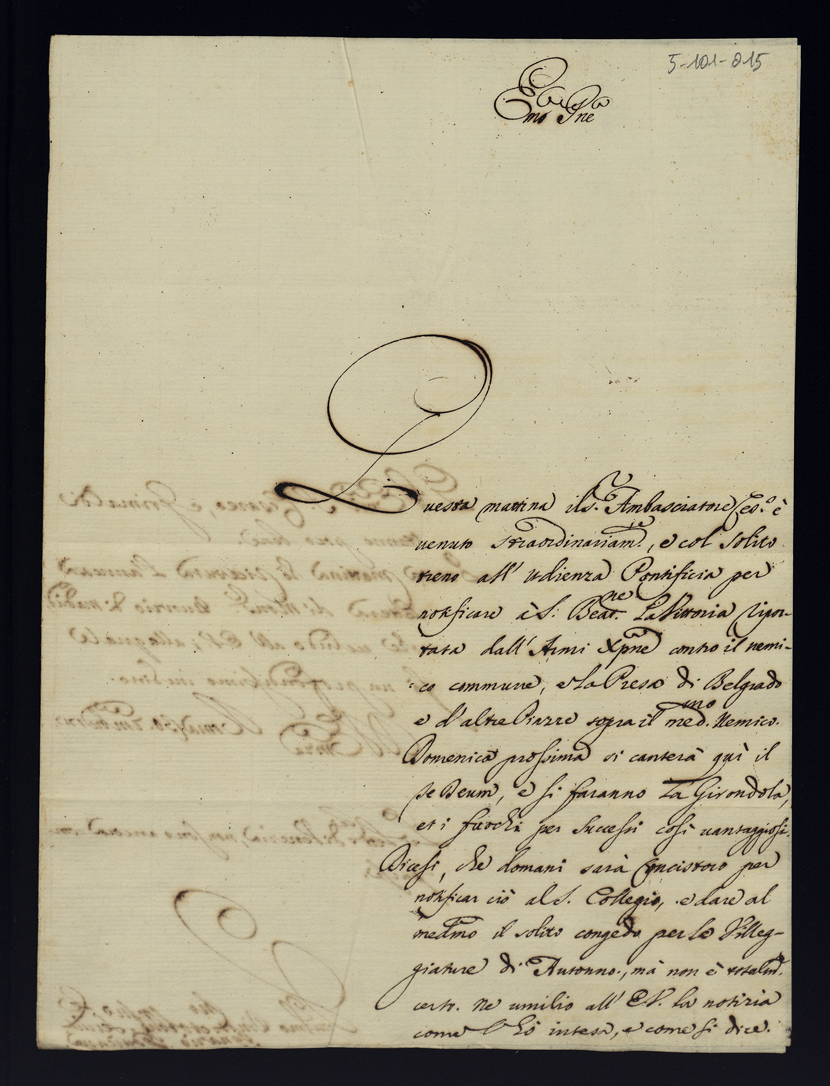 5-101-015
Emo Pne
Questa mattina il S.r Ambasciatore Ces.o è
venuto straordinariam.te, e col solito
treno all' Udienza Pontificia per
notificare à S. Beat.ne La Vittoria ripor-
tata dall' Armi Xpne contro il nemi-
co commune, e La Presa di Belgrado
e d'altre Piazze sopra il med.mo Nemico.
Domenica prossima si canterà quì il
Te Deum, e si faranno La Girondola,
et i fuochi per successi così vantaggiosi.
Dicesi, che domani sarà Concistoro per
notificar ciò al S. Collegio, e dare al
medmo il solito congedo per le Villeg-
giature di Autonno, mà non è totalm.te
certo. Ne umilio all' EV. la notizia
come l'hò intesa, e come si dice.